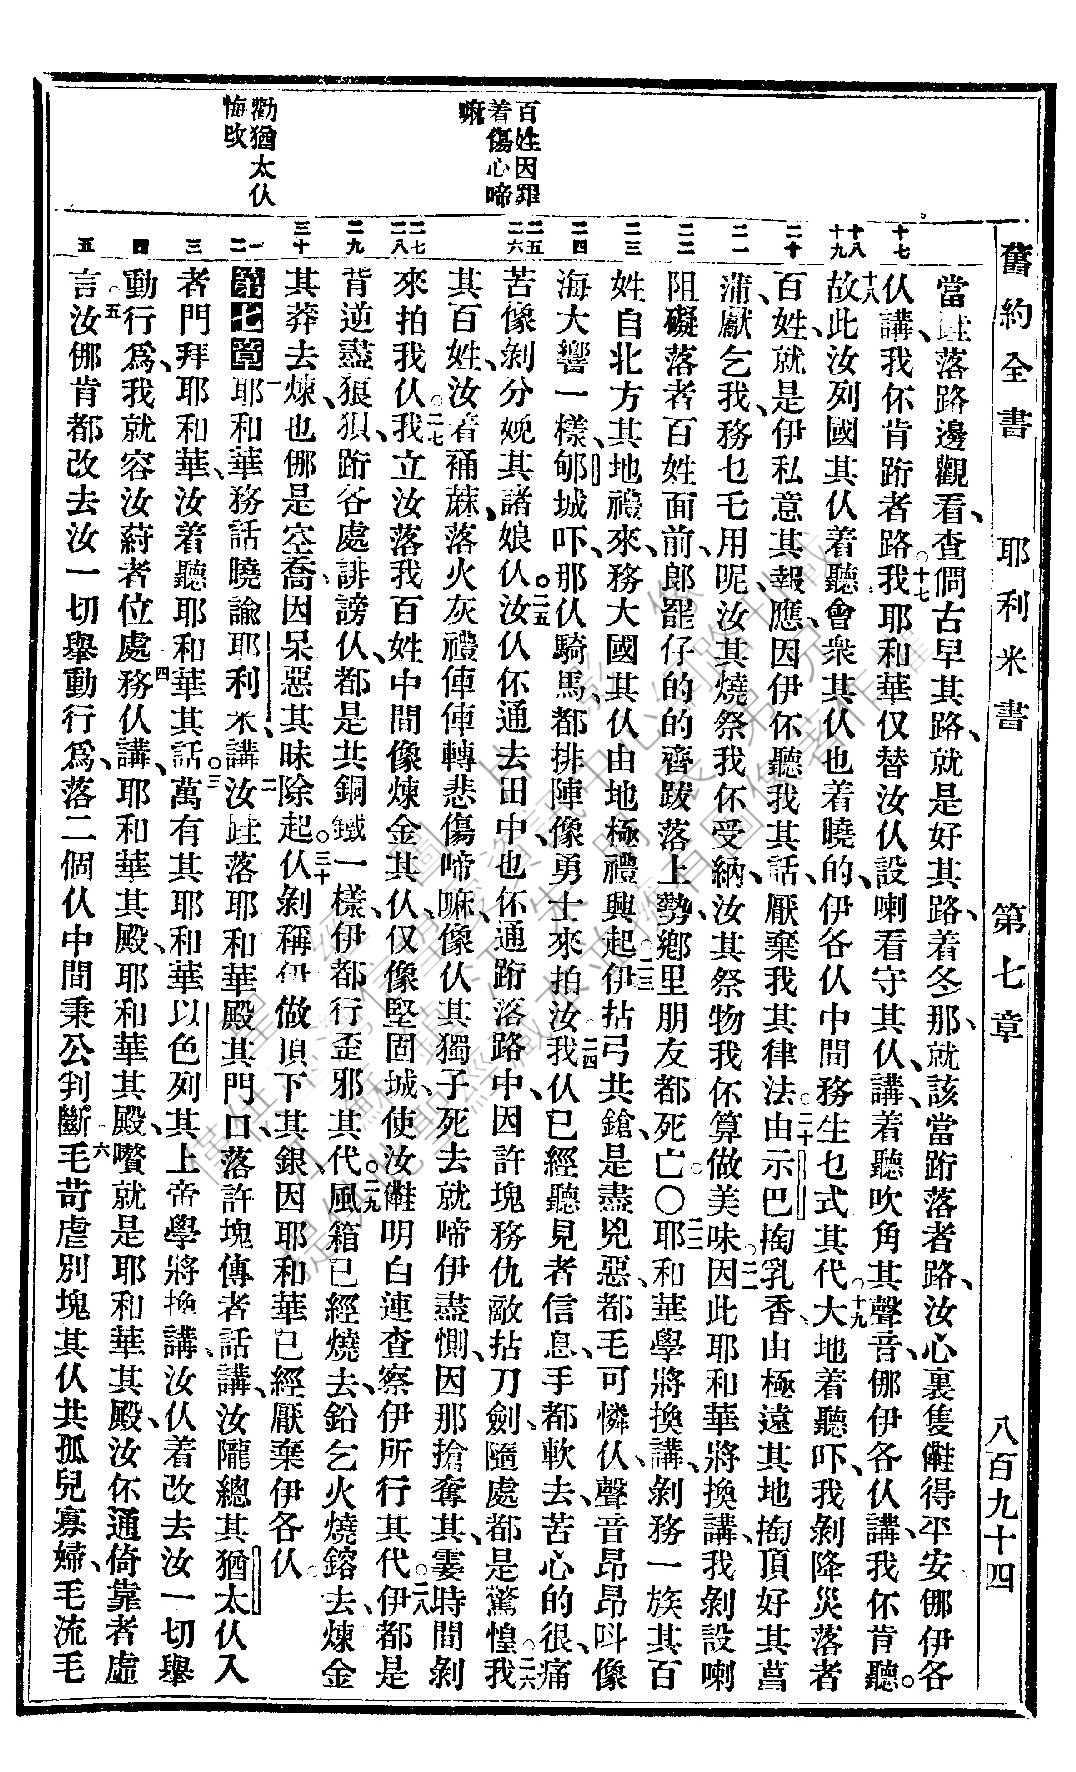 舊約全書 耶利米書 第七章 八百九十四
百姓因罪
着傷心啼
嘛
勸猶太仫
悔改
十七
十八
十九
二十
二一
二二
二三
二四
二五
二六
二七
二八
二九
三十
一
二
三
四
五
當跬落路邊觀看、查倜古早其路、就是好其路、着冬那、就該當跡落者路、汝心裏隻㒕得平安、挪伊各
仫講、我伓肯跡者路。十七我耶和華仅替汝仫設喇看守其仫講、着聽吹角其聲音、挪伊各仫講、我伓肯聽。
十八故此汝列國其仫着聽、會衆其仫也着曉的、伊各仫中間務生乜乇其代。十九大地着聽吓、我剝降災落者
百姓、就是伊私意其報應、因伊伓聽我其話、厭棄我其律法。二十由示巴掏乳香、由極遠其地掏頂好其菖
蒲、獻乞我、務乜乇用呢、汝其燒祭我伓受納、汝其祭物我伓算做美味。二一因此耶和華將換講、我剝設喇
阻礙落者百姓面前、郎罷仔的的齊跋落上勢、鄉里朋友都死亡〇二二耶和華學將換講、剝務一族其百
姓、自北方其地禮來、務大國其仫由地極禮興起。二三伊拈弓共鎗、是盡兇惡、都毛可憐仫、聲音昂昂呌像
海大響一樣、郇城吓、那仫騎馬、都排陣像勇士來拍汝。二四我仫已經聽見者信息、手都軟去、苦心的很、痛
苦像剝分娩其諸娘仫。二五汝仫伓通去田中、也伓通跡落路中、因許塊務仇敵拈刀劍、隨處都是驚惶。二六我
其百姓、汝着裲蔴、落火灰禮俥俥轉、悲傷啼嘛、像仫其獨子死去、就啼伊盡惻、因那搶奪其、霎時間剝
來拍我仫。二七我立汝落我百姓中間、像煉金其仫、仅像堅固城、使汝㒕明白連查察伊所行其代。二八伊都是
背逆盡狼狽、跡各處誹謗仫、都是共銅鐵一樣、伊都行歪邪其代。二九風箱已經燒去、鉛乞火燒鎔去、煉金
其莽去煉、也挪是空喬、因呆惡其昧除起。三十仫剝稱伊做頂下其銀、因耶和華已經厭棄伊各仫。
第七章 一耶和華務話曉諭耶利米講、二汝跬落耶和華殿其門口、落許塊傳者話講、汝隴總其猶太仫、入
者門拜耶和華、汝着聽耶和華其話。三萬有其耶和華以色列其上帝學將換講、汝仫着改去汝一切舉
動行爲、我就容汝蒔者位處。四務仫講、耶和華其殿、耶和華其殿、嚽就是耶和華其殿、汝伓通倚靠者虛
言。五汝挪肯都改去汝一切舉動行爲、落二個仫中間秉公判斷、六毛苛虐別塊其仫共孤兒寡婦、毛流毛